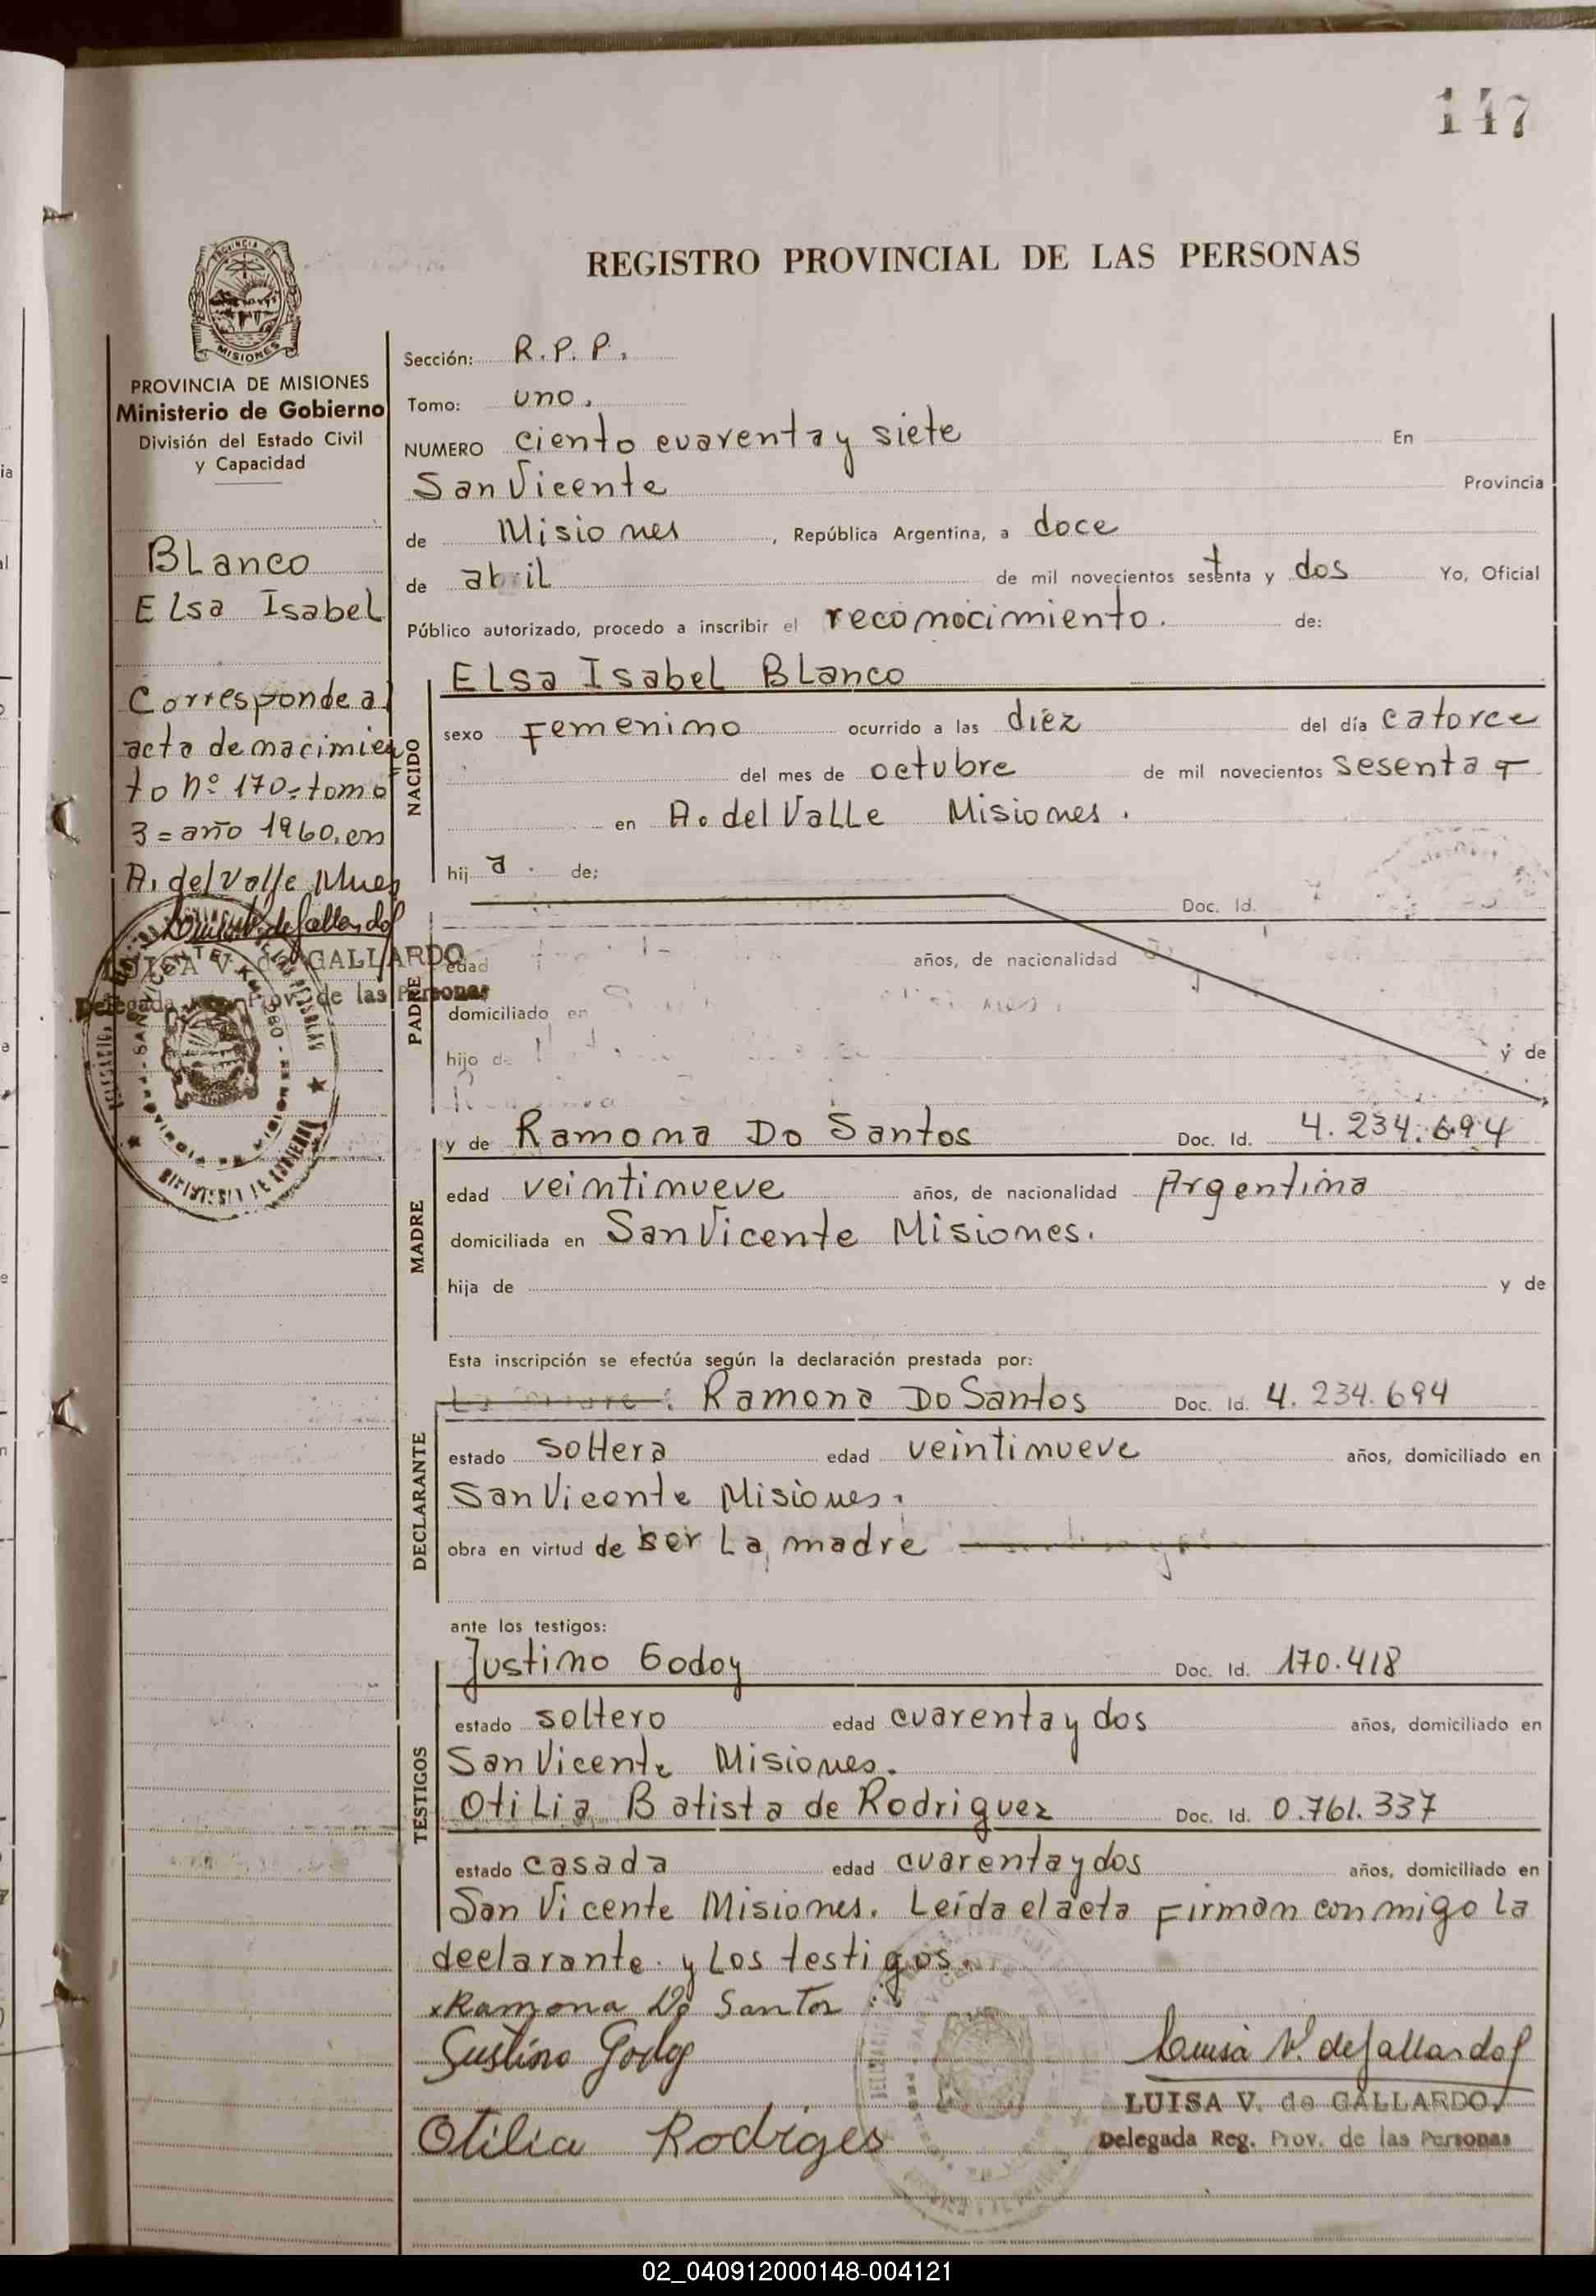 147
REGISTRO PROVINCIAL DE LAS PERSONAS
PROVINCIA DE MISIONES
Ministerio de Gobierno
División del Estado Civil
y Capacidad
BLanco
ELsa Isabel
Corresponde al
acta de nacimien
to nº 170 = tomo
3 = año 1960, en
A. del Valle, Mnes
LUISA V. de GALLARDO
Delegada Reg. Prov. de las Personas
Sección: R.P.P.
Tomo: uno.
NUMERO ciento cuarenta y siete En
San Vicente Provincia
de Misiones, República Argentina, a doce
de abril de mil novecientos setenta y dos Yo, Oficial
Público autorizado, procedo a inscribir el reconocimiento. de:
NACIDO
ELsa Isabel BLanco
sexo Femenino ocurrido a las diez del día catorce
del mes de octubre de mil novecientos sesenta
en A. del Valle Misiones.
hij a. de:
PADRE
Doc. Id.
edad años, de nacionalidad
domiciliado en
hijo de y de
MADRE
y de Ramona Do Santos Doc. Id. 4.234.694
edad veintinueve años, de nacionalidad Argentina
domiciliada en San Vicente Misiones.
hija de y de
Esta inscripción se efectúa según la declaración prestada por:
DECLARANTE
Ramona Do Santos Doc. Id. 4.234.694
estado soltera edad veintinueve años, domiciliado en
San Vicente Misiones.
obra en virtud de ser La madre
ante los testigos:
TESTIGOS
Justino Godoy Doc. Id. 170.418
estado soltero edad cuarenta y dos años, domiciliado en
San Vicente Misiones.
OtiLia Batista de Rodriguez Doc. Id. 0.761.337
estado casada edad cuarenta y dos años, domiciliado en
San Vicente Misiones. Leída el acta Firman conmigo la
declarante y Los testigos.
x Ramona Do Santos
Justino Godoy
Otilia Rodriges
Luisa V. de Gallardo
LUISA V. de GALLARDO
Delegada Reg. Prov. de las Personas
02_040912000148-004121